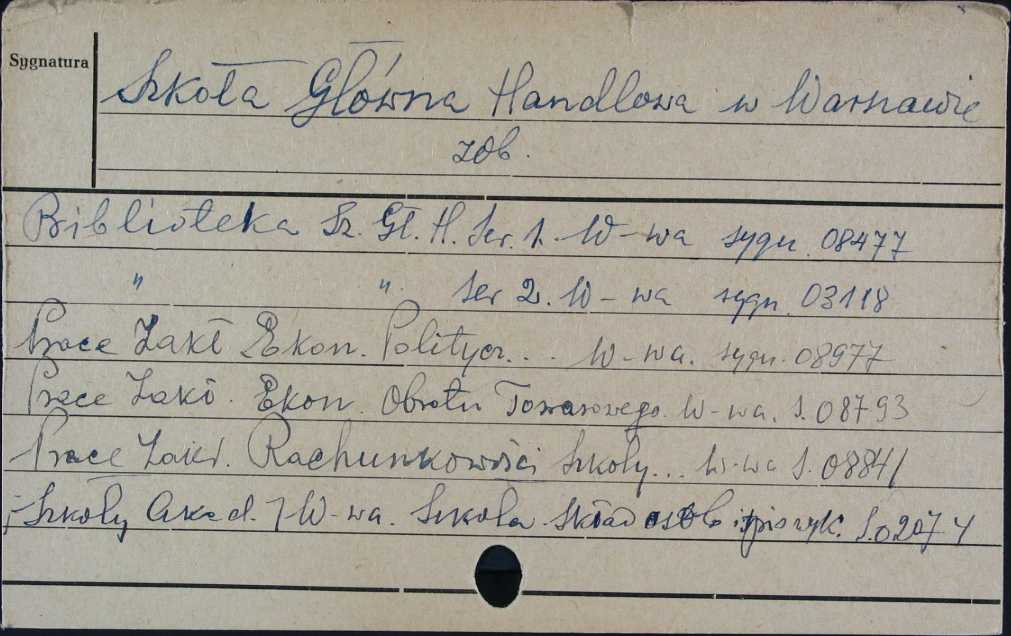 Sygnatura
Szkoła Główna Handlowa w Warszawie
zob.
Biblioteka Sz. Gł. H. Ser. 1. W-wa sygn. 08477
" " Ser 2. W-wa sygn. 03118
Prace Zakł Ekon. Politycz... W-wa. sygn. 08977
Prace Zakł. Ekon. Obrotu Towarowego. W-wa. S. 08793
Prace Zakł. Rachunkowości Szkoły... W-wa S. 08841
Szkoły Akad. W-wa. Szkoła. Skład osob i spis wyk. S.0207